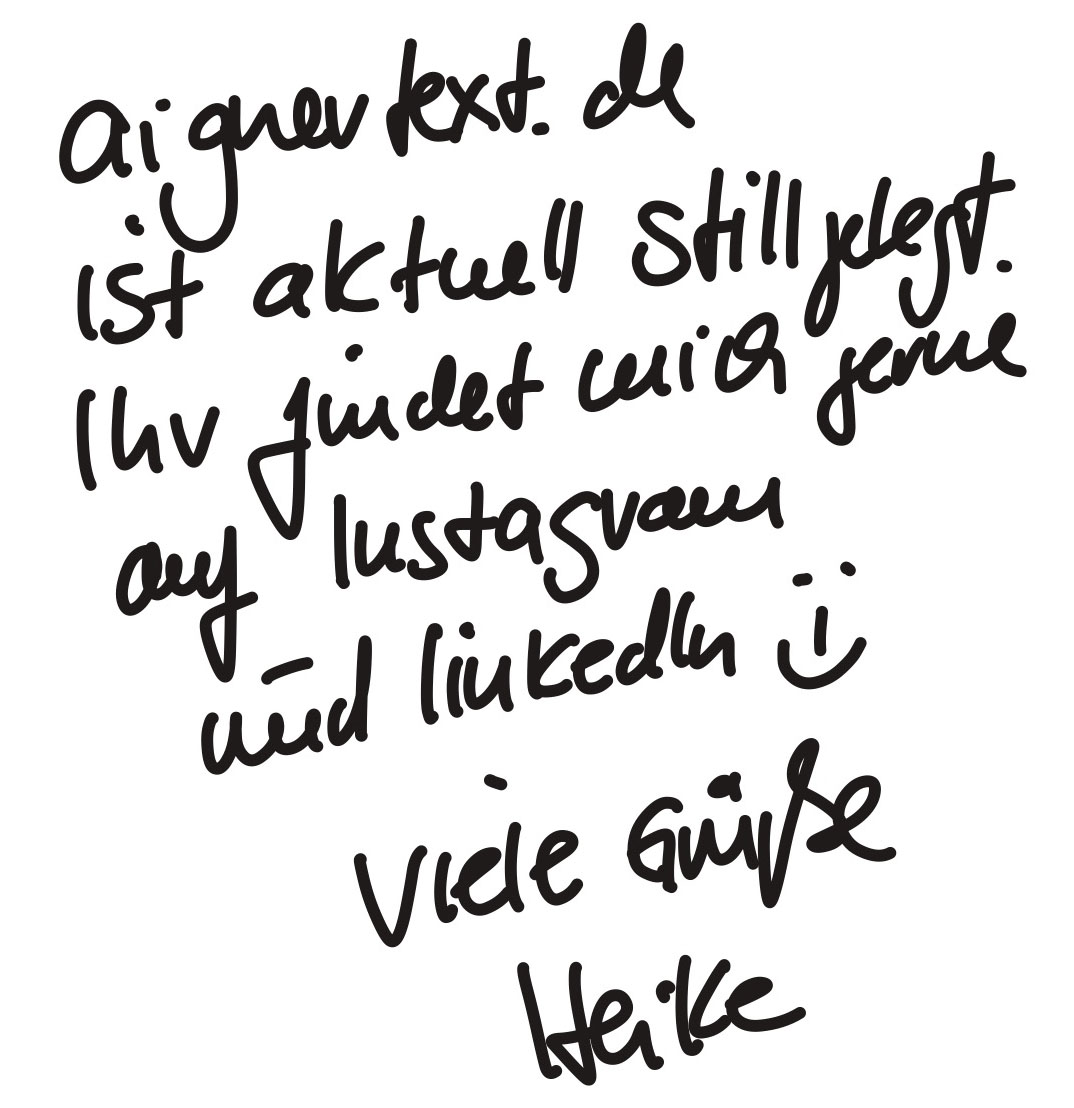 aignertext.de
ist aktuell stillgelegt.
Ihr findet mich gerne
auf Instagram
und linkedIn :)
Viele Grüße
Heike